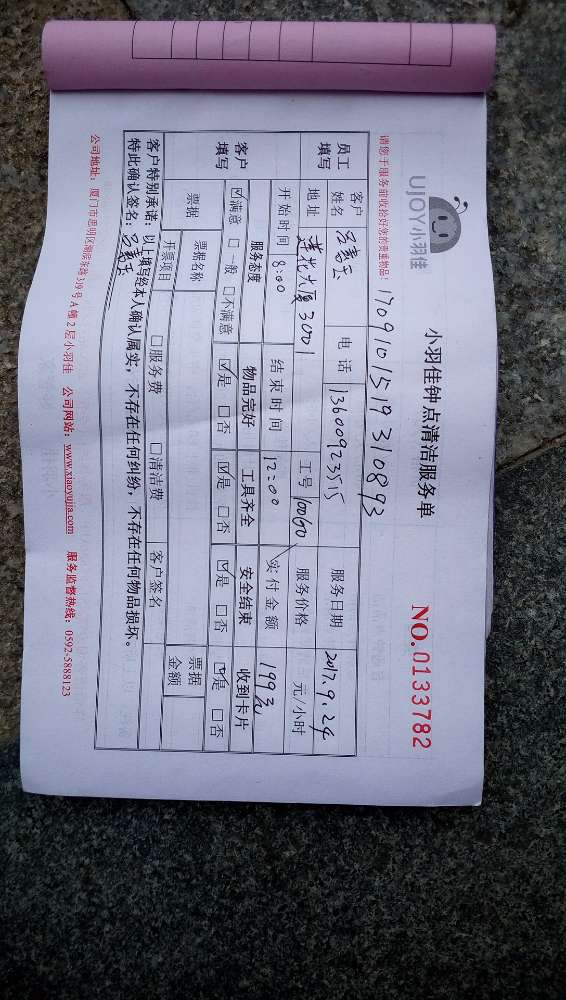 UJOY小羽佳
小羽佳钟点清洁服务单
NO.0133782
请您于服务前收拾好您的贵重物品！
1709101519310893
员工填写
客户姓名 吕嘉玉 电话 13600923515 服务日期 2017.9.24
地址 莲花大厦3001 工号 10060 服务价格 元/小时
开始时间 8:00 结束时间 12:00 实付金额 199元
客户填写
服务态度 物品完好 工具齐全 安全结束 收到卡片
☑满意 □一般 □不满意 ☑是 □否 ☑是 □否 ☑是 □否 ☑是 □否
票据 票据名称 票据金额
开票项目 □服务费 □清洁费 客户签名
客户特别承诺：以上填写经本人确认属实，不存在任何纠纷，不存在任何物品损坏。
特此确认签名：吕嘉玉
公司地址：厦门市思明区湖滨东路319号A幢2层小羽佳 公司网站：www.xiaoyujia.com 服务监督热线：0592-5888123